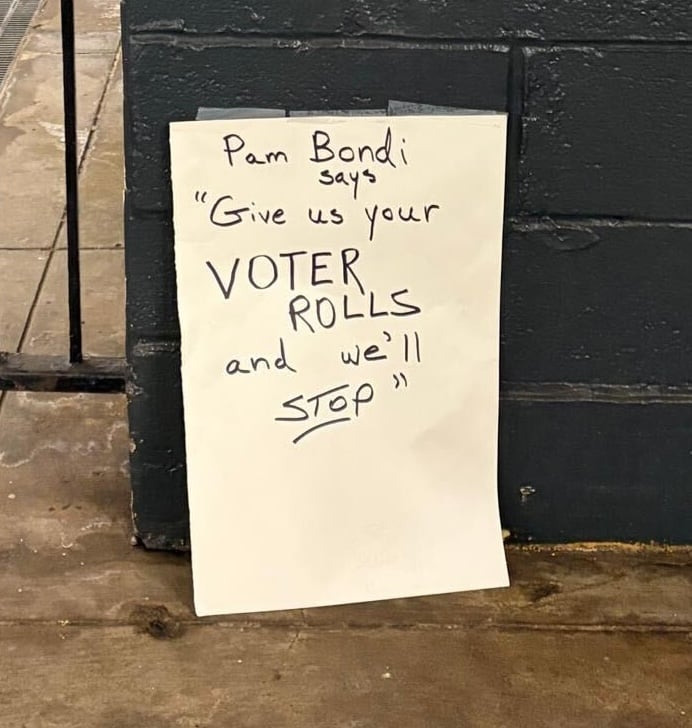 Pam Bondi
says
"Give us your
VOTER
ROLLS
and we'll
STOP"